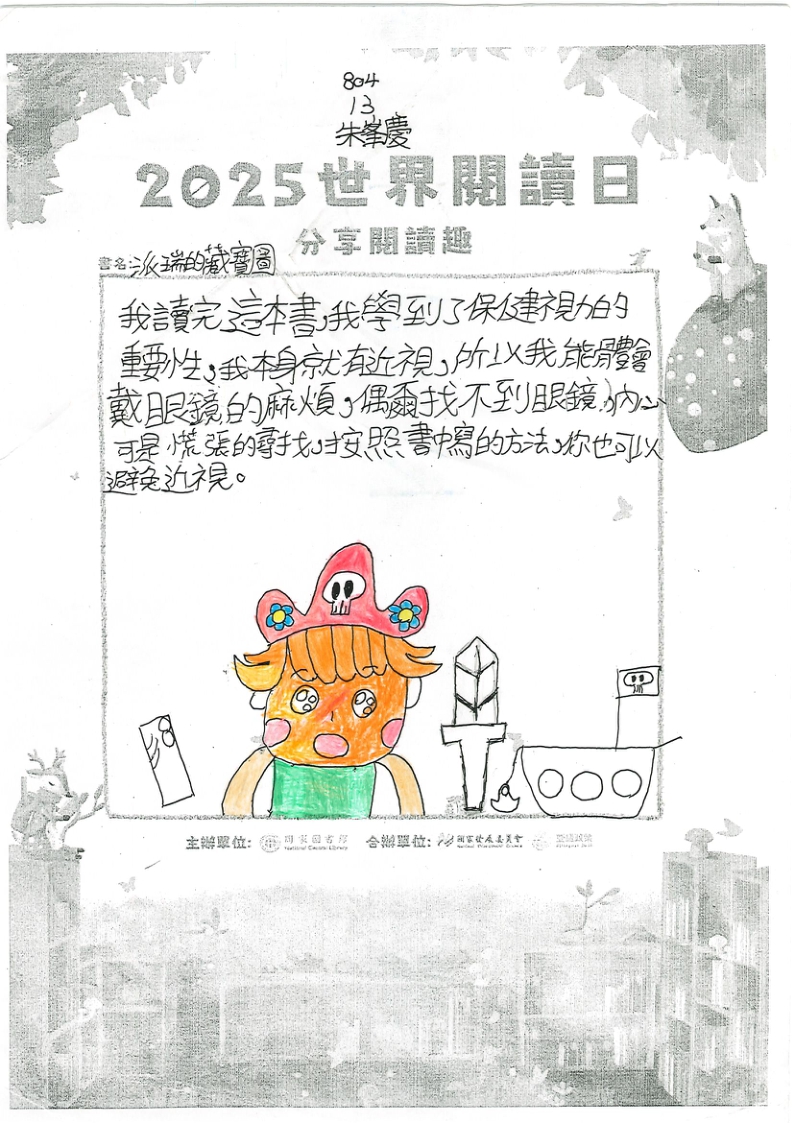 804
13
朱峯慶
2025世界閱讀日
分享閱讀趣
書名 派瑞的藏寶圖
我讀完這本書，我學到了保健視力的
重要性，我本身就有近視，所以我能體會
戴眼鏡的麻煩，偶爾找不到眼鏡，內心
可是慌張的尋找，按照書中寫的方法，你也可以
避免近視。
主辦單位: 國家圖書館 合辦單位: 國家發展委員會
National Central Library